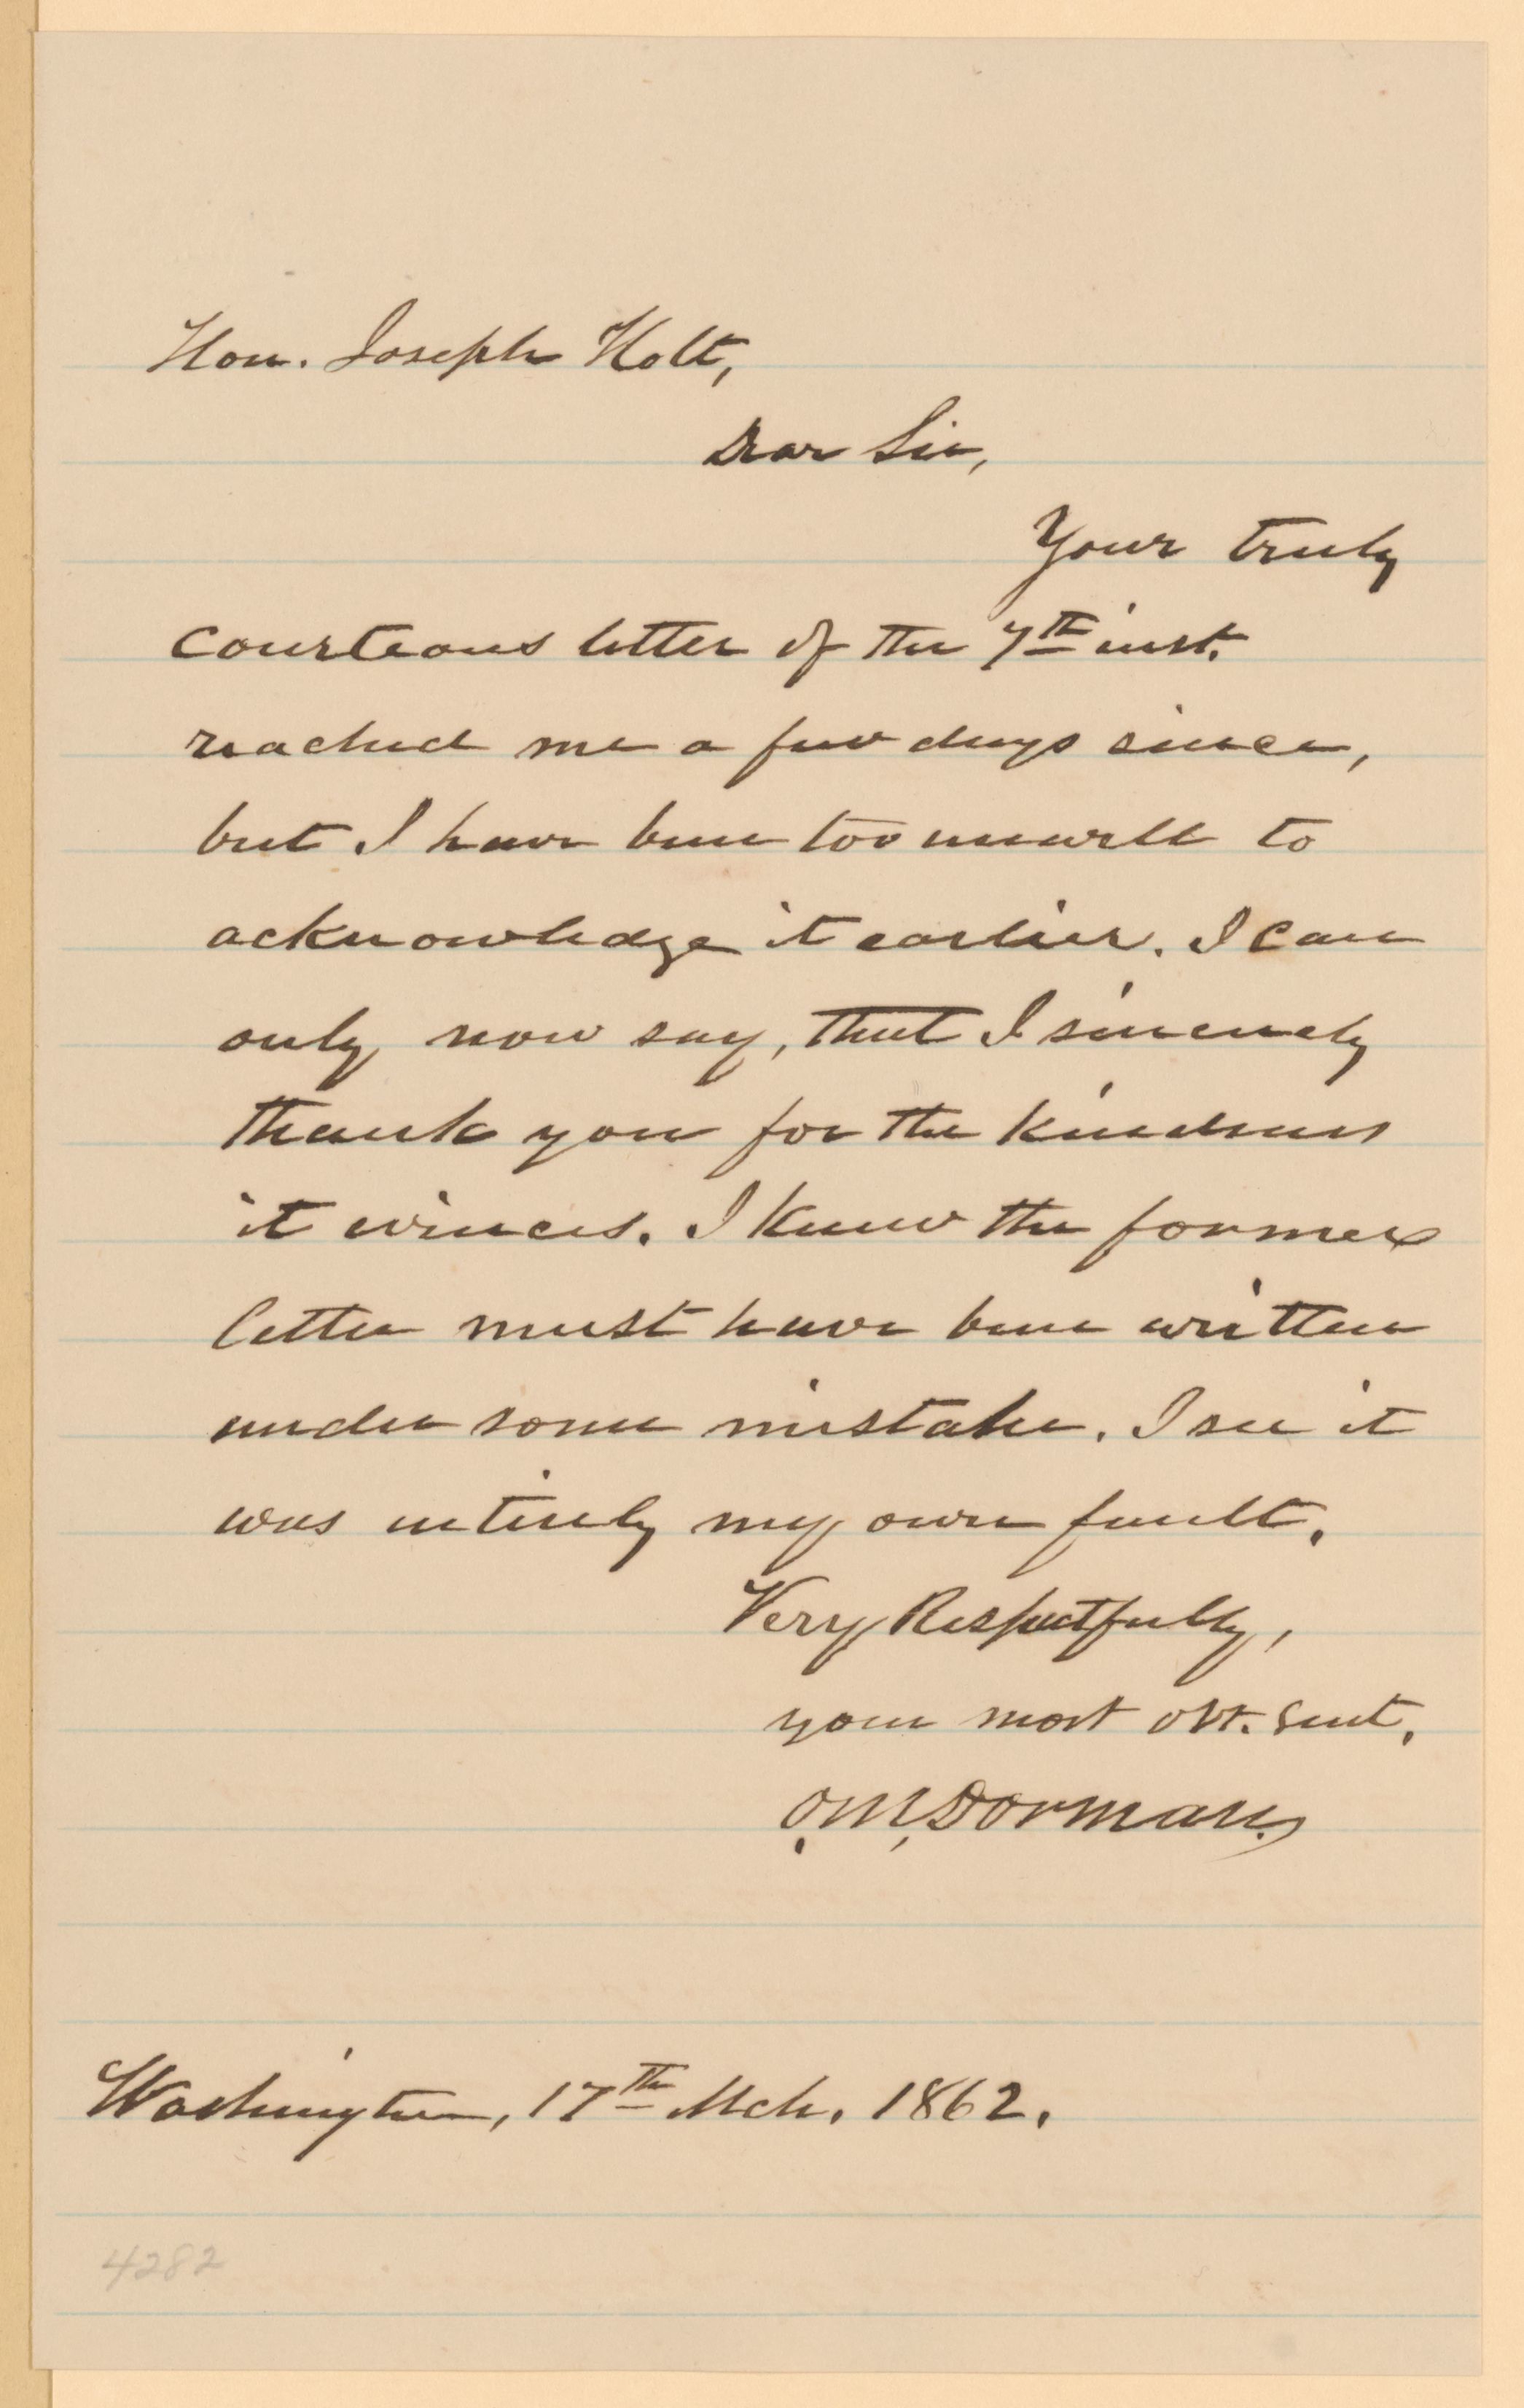 Hon. Joseph Holt,
Dear Sir,
Your truly
courteous letter of the 7th inst.
reached me a few days since,
but I have been too unwell to
acknowledge it earlier. I can
only now say, that I sincerely
thank you for the kindness
it evinces. I knew the former
letter must have been written
under some mistake. I see it
was entirely my own fault.
Very Respectfully,
your most obt. Servt.
O.M. Dorman.
Washington, 17th Mch. 1862.
4282